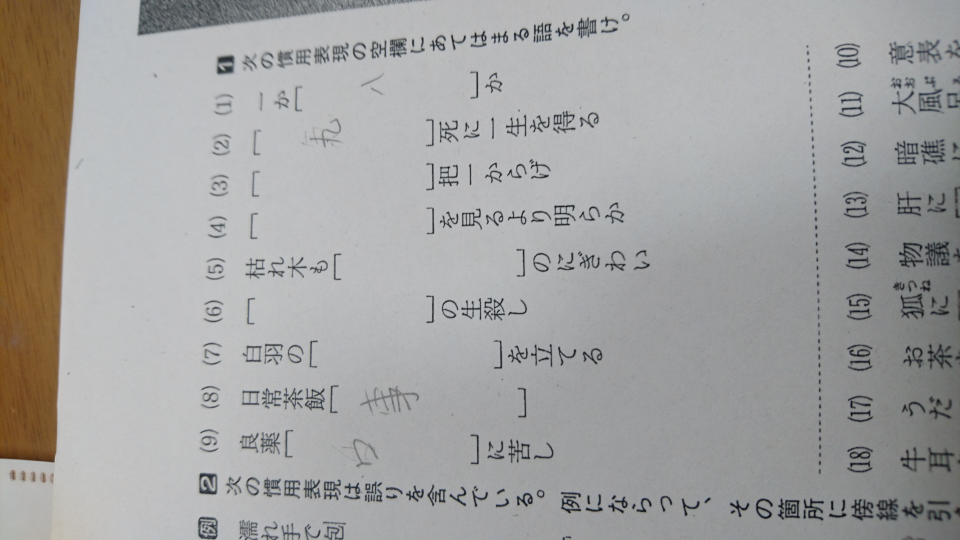 1 次の慣用表現の空欄にあてはまる語を書け。
(1) 一か[八]か
(2) [九]死に一生を得る
(3) [ ]把一からげ
(4) [ ]を見るより明らか
(5) 枯れ木も[ ]のにぎわい
(6) [ ]の生殺し
(7) 白羽の[ ]を立てる
(8) 日常茶飯[事]
(9) 良薬[口]に苦し
(10) 意表を
(11) 大風呂
(12) 暗礁に
(13) 肝に[
(14) 物議を
(15) 狐に[
(16) お茶
(17) うだ
(18) 牛耳
2 次の慣用表現は誤りを含んでいる。例にならって、その箇所に傍線を引
例 濡れ手で包